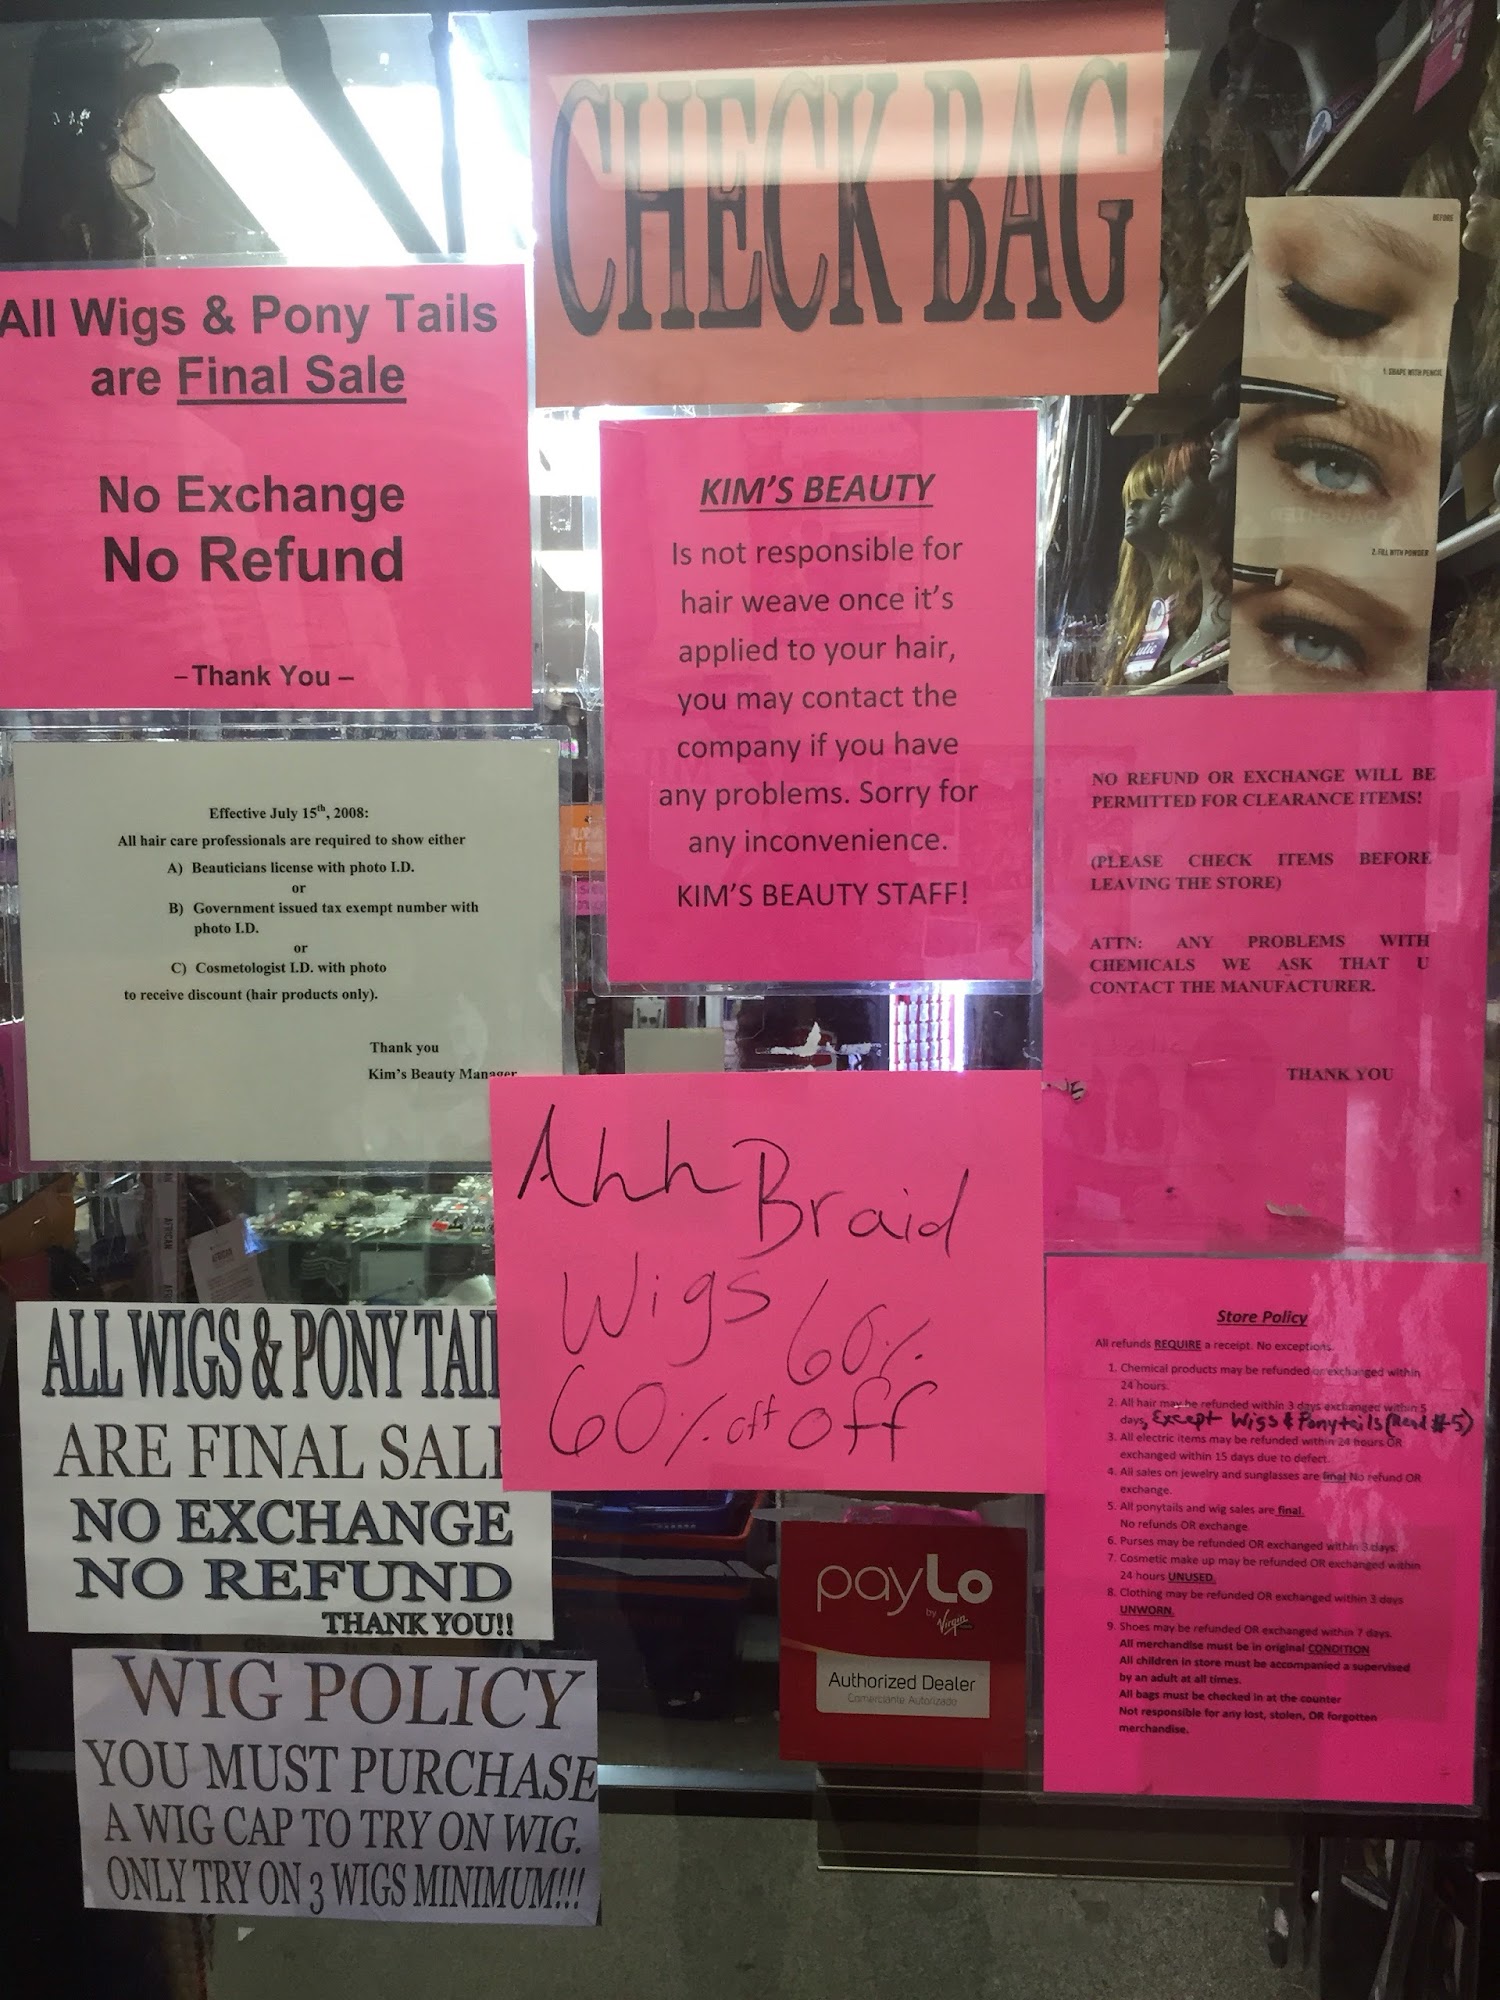 CHECK BAG
All Wigs & Pony Tails
are Final Sale
No Exchange
No Refund
– Thank You –
KIM'S BEAUTY
Is not responsible for
hair weave once it's
applied to your hair,
you may contact the
company if you have
any problems. Sorry for
any inconvenience.
KIM'S BEAUTY STAFF!
BEFORE
1. SHAPE WITH PENCIL
2. FILL WITH POWDER
Effective July 15th, 2008:
All hair care professionals are required to show either
A) Beauticians license with photo I.D.
or
B) Government issued tax exempt number with
photo I.D.
or
C) Cosmetologist I.D. with photo
to receive discount (hair products only).
Thank you
Kim's Beauty Manager
NO REFUND OR EXCHANGE WILL BE
PERMITTED FOR CLEARANCE ITEMS!
(PLEASE CHECK ITEMS BEFORE
LEAVING THE STORE)
ATTN: ANY PROBLEMS WITH
CHEMICALS WE ASK THAT U
CONTACT THE MANUFACTURER.
THANK YOU
Ahh Braid
Wigs 60%
60% off off
ALL WIGS & PONY TAI
ARE FINAL SAL
NO EXCHANGE
NO REFUND
THANK YOU!!
WIG POLICY
YOU MUST PURCHASE
A WIG CAP TO TRY ON WIG.
ONLY TRY ON 3 WIGS MINIMUM!!!
payLo
by Virgin
Authorized Dealer
Comerciante Autorizado
Store Policy
All refunds REQUIRE a receipt. No exceptions.
1. Chemical products may be refunded or exchanged within
24 hours.
2. All hair may be refunded within 3 days exchanged within 5
days, Except Wigs & Ponytails (Read #5)
3. All electric items may be refunded within 24 hours OR
exchanged within 15 days due to defect.
4. All sales on jewelry and sunglasses are final No refund OR
exchange.
5. All ponytails and wig sales are final.
No refunds OR exchange.
6. Purses may be refunded OR exchanged within 3 days.
7. Cosmetic make up may be refunded OR exchanged within
24 hours UNUSED.
8. Clothing may be refunded OR exchanged within 3 days
UNWORN.
9. Shoes may be refunded OR exchanged within 7 days.
All merchandise must be in original CONDITION
All children in store must be accompanied a supervised
by an adult at all times.
All bags must be checked in at the counter
Not responsible for any lost, stolen, OR forgotten
merchandise.